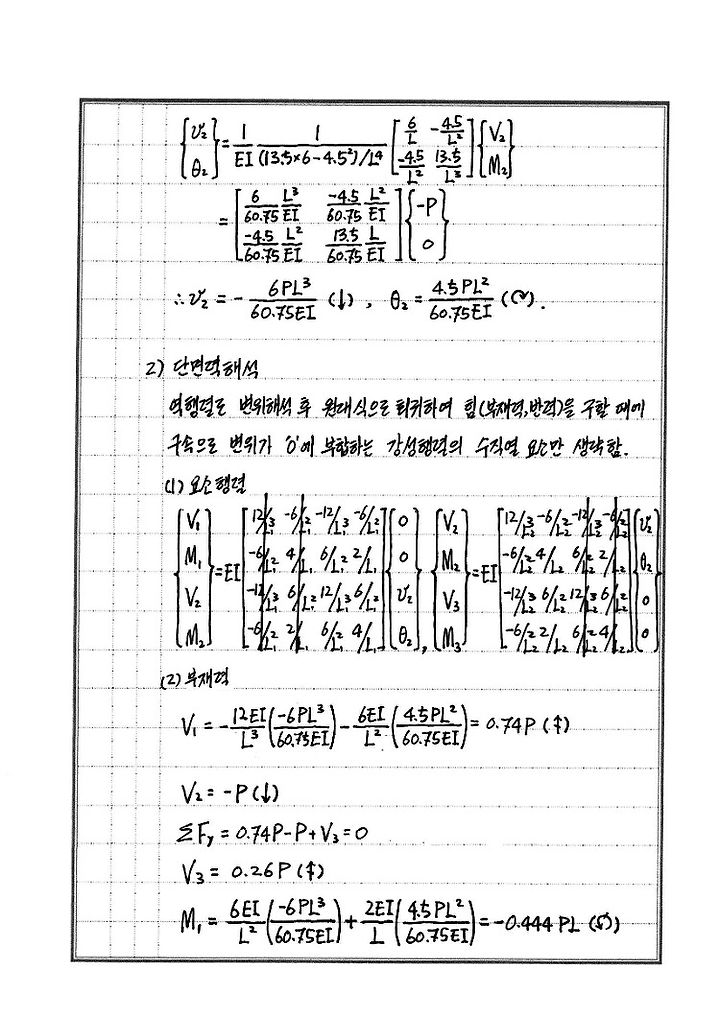 {v₂ θ₂} = 1/EI 1/((13.5×6-4.5²)/L⁴) [6/L -4.5/L² ; -4.5/L² 13.5/L³] {V₂ M₂}
= [6/60.75 L³/EI -4.5/60.75 L²/EI ; -4.5/60.75 L²/EI 13.5/60.75 L/EI] {-P 0}
∴ v₂ = - 6PL³/60.75EI (↓) , θ₂ = 4.5PL²/60.75EI (↷).
2) 단면력해석
역행렬로 변위해석 후 원래식으로 회귀하여 힘(부재력,반력)을 구할 때에
구속으로 변위가 '0'에 부합하는 강성행렬의 수직열 요소만 생략함.
(1) 요소행렬
{V₁ M₁ V₂ M₂} = EI [12/L₁³ -6/L₁² -12/L₁³ -6/L₁² ; -6/L₁² 4/L₁ 6/L₁² 2/L₁ ; -12/L₁³ 6/L₁² 12/L₁³ 6/L₁² ; -6/L₁² 2/L₁ 6/L₁² 4/L₁] {0 0 v₂ θ₂}, {V₂ M₂ V₃ M₃} = EI [12/L₂³ -6/L₂² -12/L₂³ -6/L₂² ; -6/L₂² 4/L₂ 6/L₂² 2/L₂ ; -12/L₂³ 6/L₂² 12/L₂³ 6/L₂² ; -6/L₂² 2/L₂ 6/L₂² 4/L₂] {v₂ θ₂ 0 0}
(2) 부재력
V₁ = - 12EI/L³ (-6PL³/60.75EI) - 6EI/L² (4.5PL²/60.75EI) = 0.74P (↑)
V₂ = -P(↓)
ΣFy = 0.74P-P+V₃=0
V₃ = 0.26P (↑)
M₁ = 6EI/L² (-6PL³/60.75EI) + 2EI/L (4.5PL²/60.75EI) = -0.444 PL (↺)